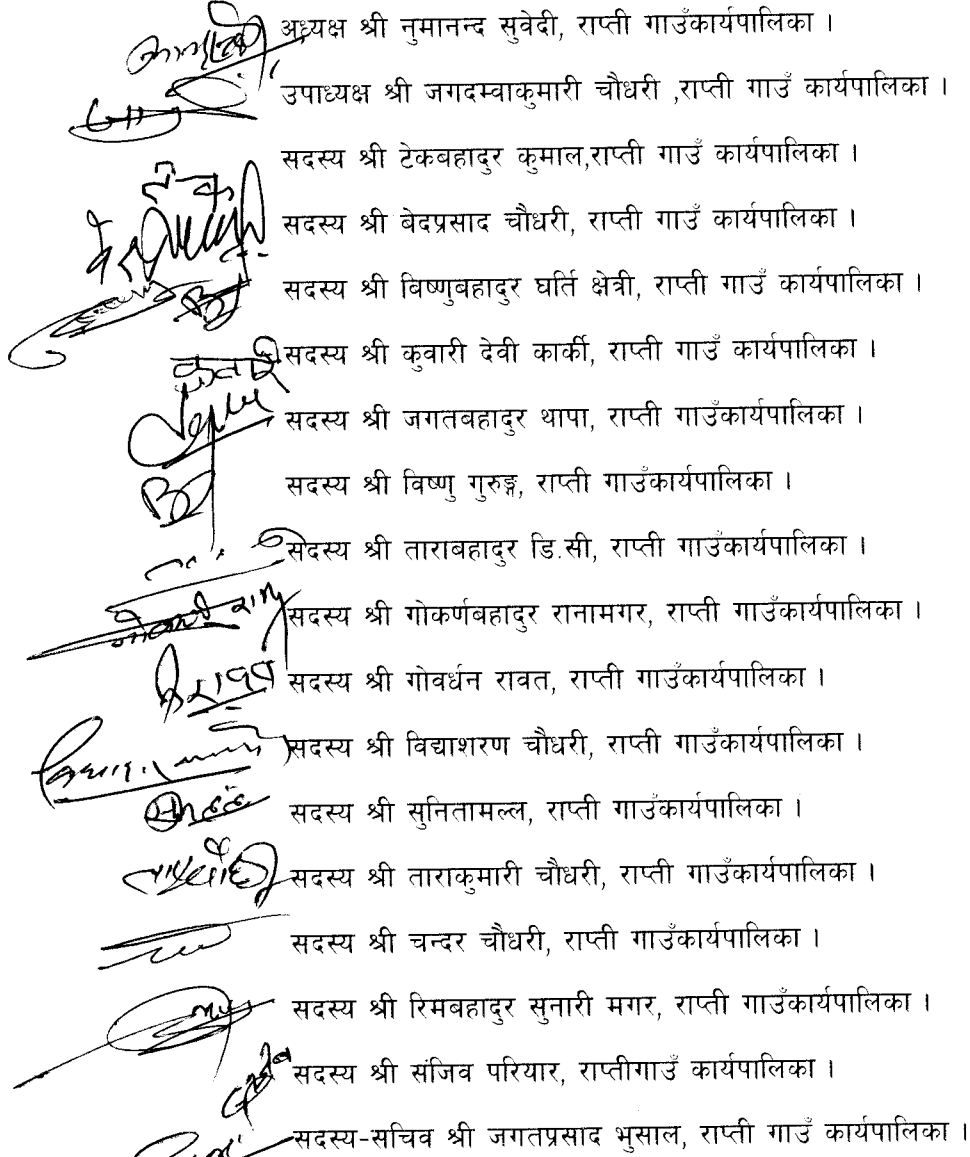 अध्यक्ष श्री नुमानन्द सुवेदी, राप्ती गाउँकार्यपालिका ।
उपाध्यक्ष श्री जगदम्वाकुमारी चौधरी ,राप्ती गाउँ कार्यपालिका ।
सदस्य श्री टेकबहादुर कुमाल,राप्ती गाउँ कार्यपालिका ।
सदस्य श्री बेदप्रसाद चौधरी, राप्ती गाउँ कार्यपालिका ।
सदस्य श्री विष्णुबहादुर घर्ति क्षेत्री, राप्ती गाउँ कार्यपालिका ।
सदस्य श्री कुवारी देवी कार्की, राप्ती गाउँ कार्यपालिका ।
सदस्य श्री जगतबहादुर थापा, राप्ती गाउँकार्यपालिका ।
सदस्य श्री विष्णु गुरुङ्ग, राप्ती गाउँकार्यपालिका ।
सदस्य श्री ताराबहादुर डि.सी, राप्ती गाउँकार्यपालिका ।
सदस्य श्री गोकर्णबहादुर रानामगर, राप्ती गाउँकार्यपालिका ।
सदस्य श्री गोवर्धन रावत, राप्ती गाउँकार्यपालिका ।
सदस्य श्री विद्याशरण चौधरी, राप्ती गाउँकार्यपालिका ।
सदस्य श्री सुनितामल्ल, राप्ती गाउँकार्यपालिका ।
सदस्य श्री ताराकुमारी चौधरी, राप्ती गाउँकार्यपालिका ।
सदस्य श्री चन्दर चौधरी, राप्ती गाउँकार्यपालिका ।
सदस्य श्री रिमबहादुर सुनारी मगर, राप्ती गाउँकार्यपालिका ।
सदस्य श्री संजिव परियार, राप्तीगाउँ कार्यपालिका ।
सदस्य-सचिव श्री जगतप्रसाद भुसाल, राप्ती गाउँ कार्यपालिका ।